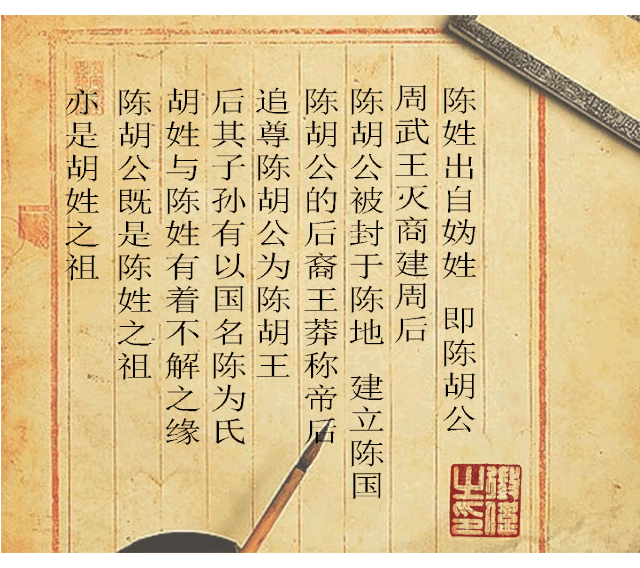 陈姓出自妫姓 即陈胡公
周武王灭商建周后
陈胡公被封于陈地 建立陈国
陈胡公的后裔王莽称帝后
追尊陈胡公为陈胡王
后其子孙有以国名陈为氏
胡姓与陈姓有着不解之缘
陈胡公既是陈姓之祖
亦是胡姓之祖